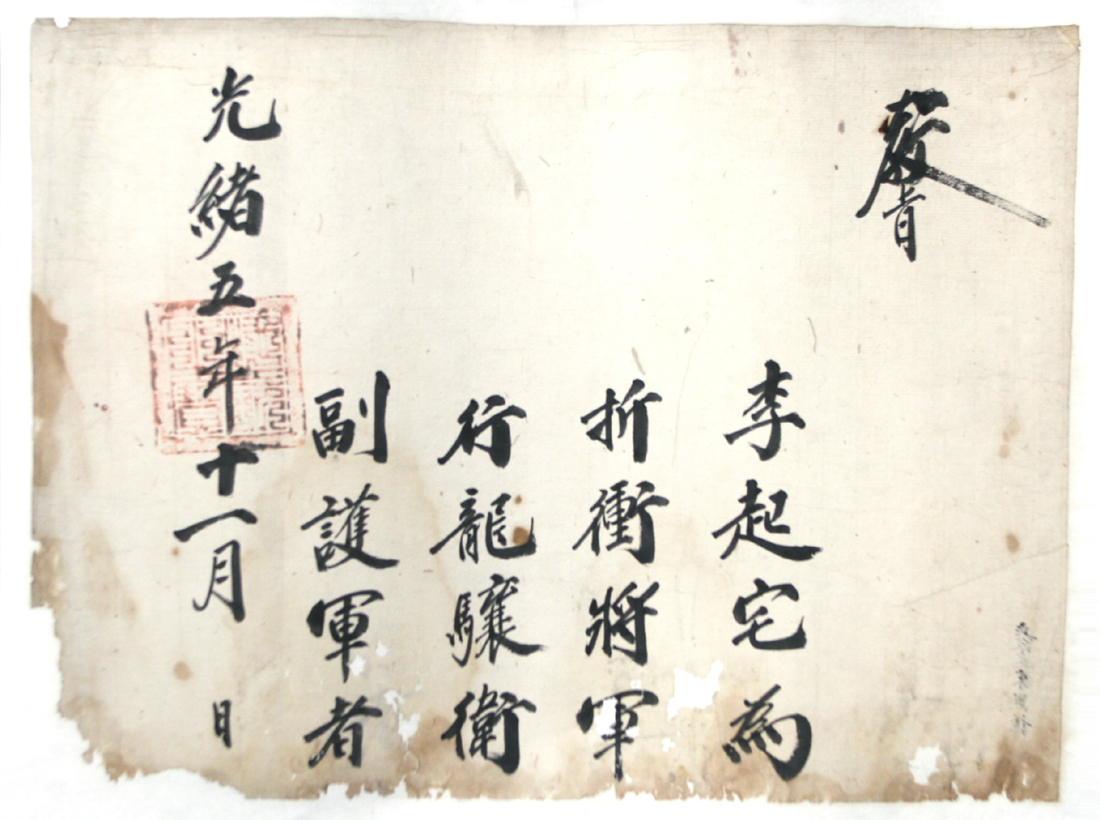 敎旨
李起宅為
折衝將軍
行龍驤衛
副護軍者
光緖五年十一月 日